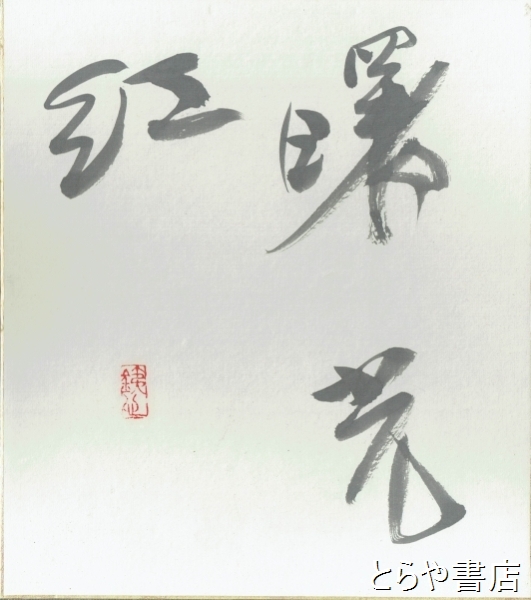 曙光
紅
とらや書店